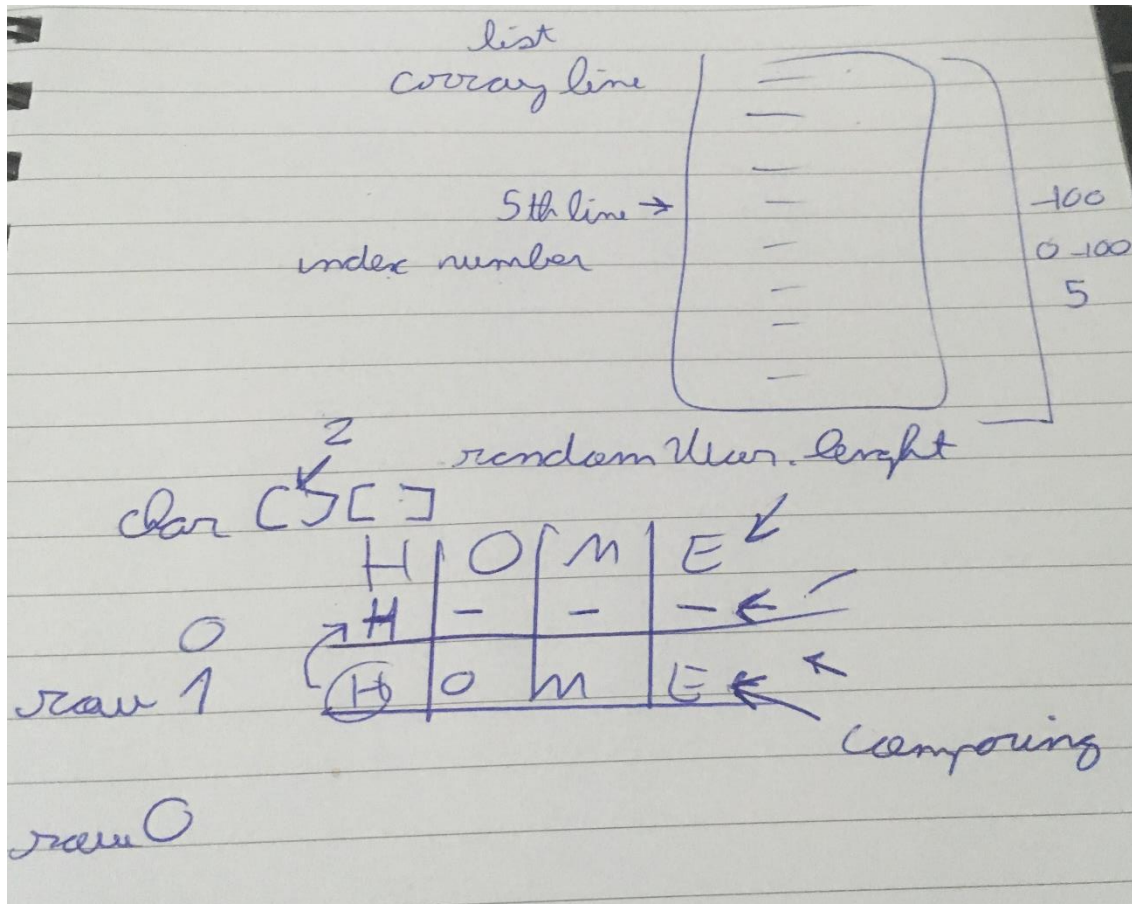 list
array line
5th line →
index number
-100
0-100
5
lenght
2
char [][]
H O M E
0 H - - -
row 1 H O M E
comparing
row 0